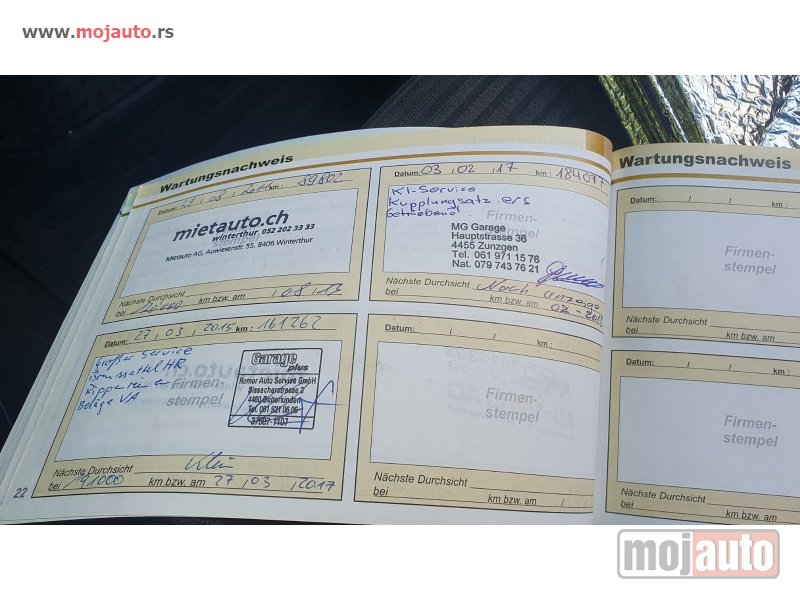 www.mojauto.rs
Wartungsnachweis
Datum: 29 08 2011 km: 89802
mietauto.ch
winterthur 052 202 33 33
stempel
Mietauto AG, Auwiesenstr. 55, 8406 Winterthur
Nächste Durchsicht
bei 120000 km bzw. am / 08 / 13
Datum: 03 / 02 / 17 km: 184077
Kl-Service
Kupplungsatz. ers
Firmen-
MG Garage
Hauptstrasse 36
4455 Zunzgen
Tel. 061 971 15 76
Nat. 079 743 76 21
Nächste Durchsicht Nach Anzeige
bei km bzw. am 02 -
Datum: 27, 03, 2015 km: 161262
Großer Service
Firmen-
stempel
Beläge VA
Garage
plus
Romer Auto Service GmbH
Sissacherstrasse
Tel. 061 921 06 06
Nächste Durchsicht
bei 191000 km bzw. am 27 / 03 / 2017
Datum: / / km:
Firmen-
stempel
Nächste Durchsicht
bei km bzw. am / /
22
Wartungsnachweis
Datum: / /
Firmen-
stempel
Nächste Durchsicht
bei km bzw. am
Datum: / /
Firmen-
stempel
Nächste Durchsicht
bei km bzw. am
mojauto